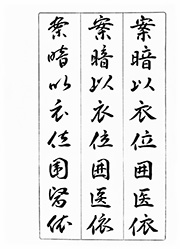 案暗以衣位囲医依
案暗以衣位囲医依
案暗以衣位圍醫依